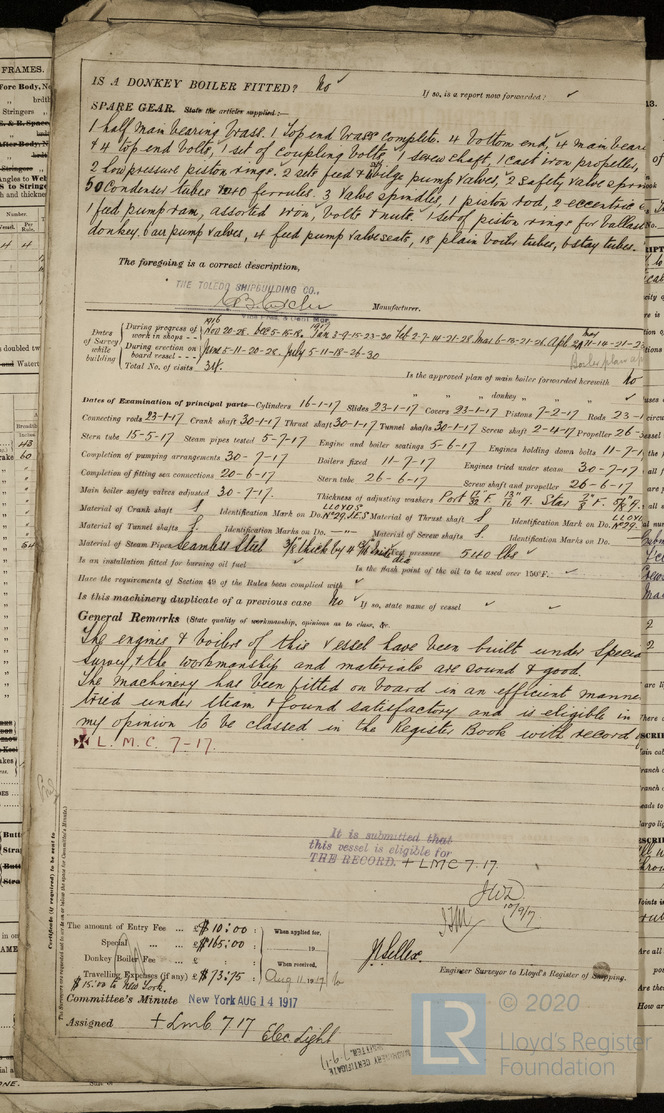 IS A DONKEY BOILER FITTED? No ✓ If so, is a report now forwarded? ✓
SPARE GEAR. State the articles supplied:—
1 half main bearing brass. 1 top end brass complete. 4 bottom end, 4 main bear
& 4 top end bolts, 1 set of coupling bolts, 1 screw shaft, 1 cast iron propeller,
2 low pressure piston rings. 2 sets feed & bilge pump valves, 2 safety valve
50 Condenser tubes ferrules. 3 valve spindles, 1 piston rod, 2 eccentric
1 feed pump ram, assorted iron, bolts & nuts. 1 set of piston rings for ballast
donkey. 6 air pump valves, 4 feed pump valve seats, 18 plain boiler tubes, 6 stay tubes.
The foregoing is a correct description,
THE TOLEDO SHIPBUILDING CO.,
Manufacturer.
Dates of Survey while building
During progress of work in shops - - 1916 Nov 20-28. Dec 5-15-18. 1917 Jan 3-9-15-23-30 Feb 2-7-14-21-28 Mar 6-13-21-26 Apl May
During erection on board vessel - - - June 5-11-20-28. July 5-11-18-26-30
Total No. of visits 34.
Boiler plan
Is the approved plan of main boiler forwarded herewith No
" " " donkey " " " ✓
Dates of Examination of principal parts—Cylinders 16-1-17 Slides 23-1-17 Covers 23-1-17 Pistons 7-2-17 Rods 23-1
Connecting rods 23-1-17 Crank shaft 30-1-17 Thrust shaft 30-1-17 Tunnel shafts 30-1-17 Screw shaft 2-4-17 Propeller 26-
Stern tube 15-5-17 Steam pipes tested 5-7-17 Engine and boiler seatings 5-6-17 Engines holding down bolts 11-7-1
Completion of pumping arrangements 30-7-17 Boilers fixed 11-7-17 Engines tried under steam 30-7-17
Completion of fitting sea connections 20-6-17 Stern tube 26-6-17 Screw shaft and propeller 26-6-17
Main boiler safety valves adjusted 30-7-17. Thickness of adjusting washers Port F. A. Star F. A.
Material of Crank shaft S Identification Mark on Do. LLOYDS Nº29.J.E.S Material of Thrust shaft S Identification Mark on Do. LLOYDS Nº29.
Material of Tunnel shafts S Identification Marks on Do. Material of Screw shafts S Identification Marks on Do.
Material of Steam Pipes Seamless Steel 3/8 thick by Test pressure 540 lbs ✓
Is an installation fitted for burning oil fuel ✓ Is the flash point of the oil to be used over 150°F. ✓
Have the requirements of Section 49 of the Rules been complied with ✓
Is this machinery duplicate of a previous case No ✓ If so, state name of vessel ✓
General Remarks (State quality of workmanship, opinions as to class, &c.
The engines & boilers of this vessel have been built under Specia
Survey, & the workmanship and materials are sound & good.
The machinery has been fitted on board in an efficient manne
tried under steam & found satisfactory and is eligible in
my opinion to be classed in the Register Book with record
✠ L.M.C. 7-17.
It is submitted that
this vessel is eligible for
THE RECORD. + LMC 7.17.
JWD
10/9/17
The amount of Entry Fee ... £ $10:00 : When applied for,
Special ... ... £ $165:00 : 19
Donkey Boiler Fee ... £ : : When received,
Travelling Expenses (if any) £ $73:75 Aug 11. 1917
$15.00 to New York.
Engineer Surveyor to Lloyd's Register of Shipping.
Committee's Minute New York AUG 14 1917
Assigned + LMC 7 17 Elec Light
MACHINERY CERTIFICATE
WRITTEN 7-9-17
Certificate (if required) to be sent to
© 2020
LR
Lloyd's Register
Foundation